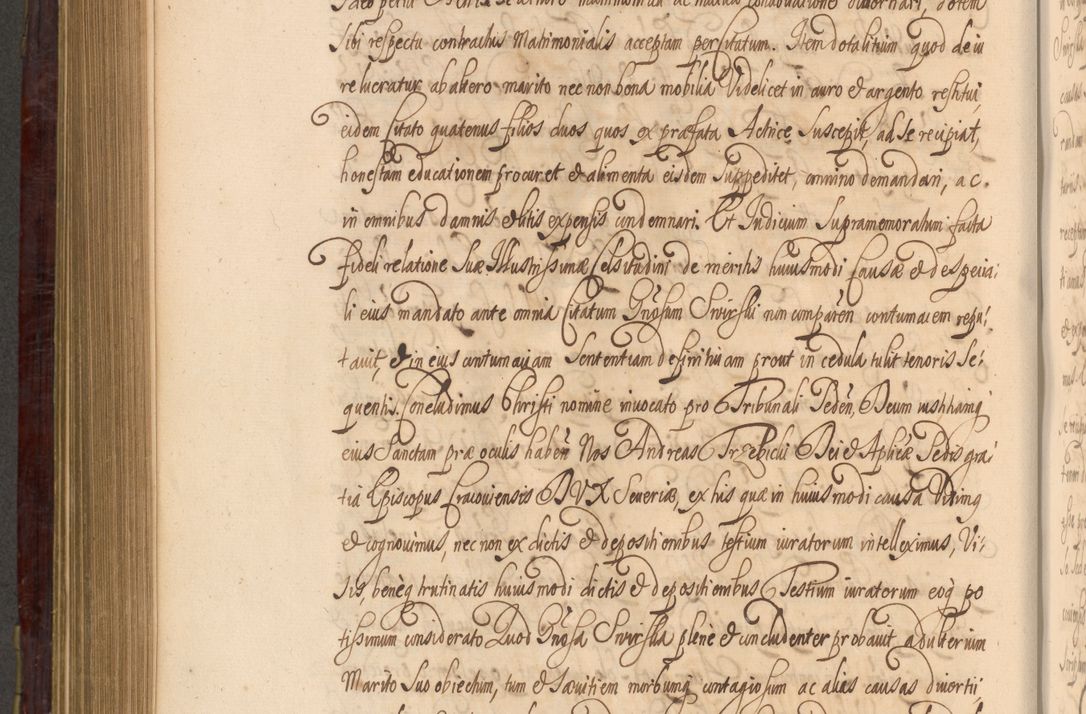 sibi respectu contractus Matrimonialis acceptam per Citatum. Item dotalitium quod de iu
re lucratur ab altero marito nec non bona mobilia Videlicet in auro et argento restitui,
eidem Citato quatenus filios duos quos ex præfata Actrice Suscepit, ad se recipiat,
honestam educationem procuret et alimenta eisdem Suppeditet, omnino demandari, ac.
in omnibus damnis et litis expensis condemnari. Et Iudicium Supramemoratum facta
fideli relatione Suæ Illustrissimæ Celsitudini de meritis huiusmodi Causæ et de specia:
li eius mandato ante omnia Citatum Gnosum Swirski non comparen contumacem repu:
tavit, et in eius contumaciam Sententiam definitivam prout in cedula tulit tenoris Se:
quentis. Concludimus Christi nomine invocato pro Tribunali Seden, Deum iustitiamq
eius Sanctam præ oculis haben Nos Andreas Trzebicki Dei et Aplicæ Sedis gra:
tia Episcopus Cracoviensis DUX Severiæ, ex his quæ in huiusmodi causa Vidimq
et cognovimus, nec non ex dictis et depositionibus testium iuratorum intelleximus, Vi:
sis, beneq trutinatis huiusmodi dictis et depositionibus Testium iuratorum eoq po
tissimum considerato Quod Gnosa Swirska plene et concludenter probavit adulterium
Marito Suo obiectum, tum et Sævitiem morbumq contagiosum ac alias causas divortii